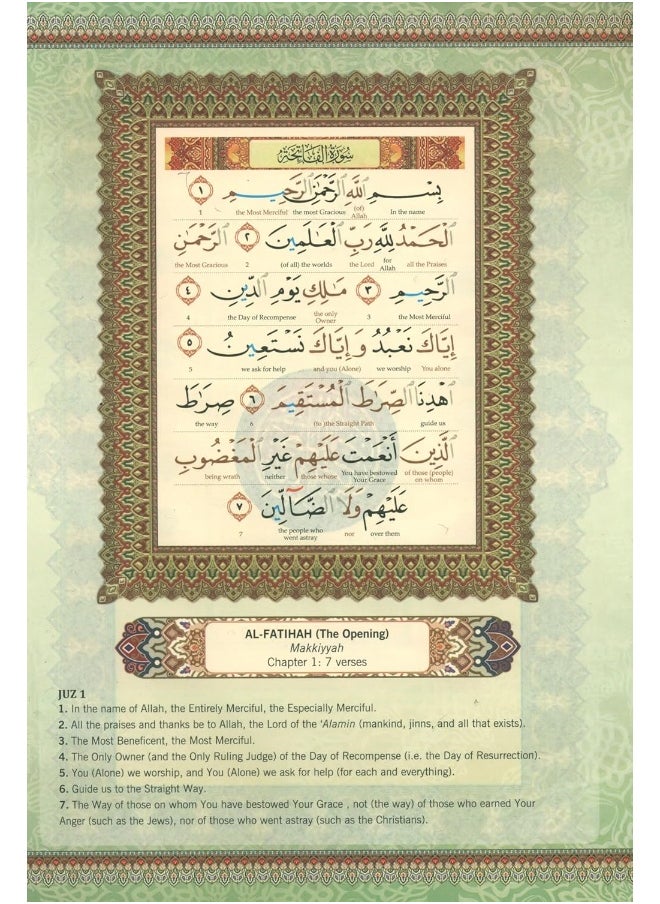 سُورَةُ الْفَاتِحَةِ
بِسْمِ اللَّهِ الرَّحْمَٰنِ الرَّحِيمِ ١
In the name (of) Allah the most Gracious the Most Merciful 1
الْحَمْدُ لِلَّهِ رَبِّ الْعَالَمِينَ ٢ الرَّحْمَٰنِ
all the Praises for Allah the Lord (of all) the worlds 2 the Most Gracious
الرَّحِيمِ ٣ مَالِكِ يَوْمِ الدِّينِ ٤
the Most Merciful 3 the only Owner the Day of Recompense 4
إِيَّاكَ نَعْبُدُ وَإِيَّاكَ نَسْتَعِينُ ٥
You alone we worship and you (Alone) we ask for help 5
اهْدِنَا الصِّرَاطَ الْمُسْتَقِيمَ ٦ صِرَاطَ
guide us (to) the Straight Path 6 the way
الَّذِينَ أَنْعَمْتَ عَلَيْهِمْ غَيْرِ الْمَغْضُوبِ
of those (people) on whom You have bestowed Your Grace those whose neither being wrath
عَلَيْهِمْ وَلَا الضَّالِّينَ ٧
over them nor the people who went astray 7
AL-FATIHAH (The Opening)
Makkiyyah
Chapter 1: 7 verses
JUZ 1
1. In the name of Allah, the Entirely Merciful, the Especially Merciful.
2. All the praises and thanks be to Allah, the Lord of the ‘Alamin (mankind, jinns, and all that exists).
3. The Most Beneficent, the Most Merciful.
4. The Only Owner (and the Only Ruling Judge) of the Day of Recompense (i.e. the Day of Resurrection).
5. You (Alone) we worship, and You (Alone) we ask for help (for each and everything).
6. Guide us to the Straight Way.
7. The Way of those on whom You have bestowed Your Grace , not (the way) of those who earned Your
Anger (such as the Jews), nor of those who went astray (such as the Christians).